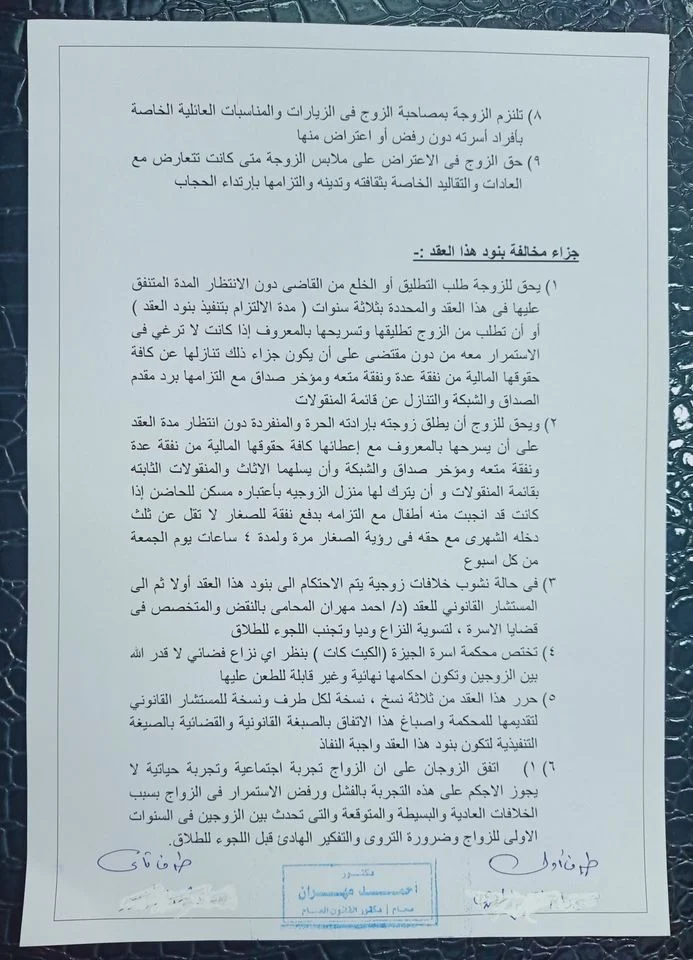 ٨) تلتزم الزوجة بمصاحبة الزوج فى الزيارات والمناسبات العائلية الخاصة
بأفراد أسرته دون رفض أو اعتراض منها
٩) حق الزوج فى الاعتراض على ملابس الزوجة متى كانت تتعارض مع
العادات والتقاليد الخاصة بثقافته وتدينه والتزامها بإرتداء الحجاب
جزاء مخالفة بنود هذا العقد :-
١) يحق للزوجة طلب التطليق أو الخلع من القاضى دون الانتظار المدة المتنفق
عليها فى هذا العقد والمحددة بثلاثة سنوات ( مدة الالتزام بتنفيذ بنود العقد )
أو أن تطلب من الزوج تطليقها وتسريحها بالمعروف إذا كانت لا ترغي فى
الاستمرار معه من دون مقتضى على أن يكون جزاء ذلك تنازلها عن كافة
حقوقها المالية من نفقة عدة ونفقة متعه ومؤخر صداق مع التزامها برد مقدم
الصداق والشبكة والتنازل عن قائمة المنقولات
٢) ويحق للزوج أن يطلق زوجته بإرادته الحرة والمنفردة دون انتظار مدة العقد
على أن يسرحها بالمعروف مع إعطائها كافة حقوقها المالية من نفقة عدة
ونفقة متعه ومؤخر صداق والشبكة وأن يسلهما الاثاث والمنقولات الثابته
بقائمة المنقولات و أن يترك لها منزل الزوجيه بأعتباره مسكن للحاضن إذا
كانت قد انجبت منه أطفال مع التزامه بدفع نفقة للصغار لا تقل عن ثلث
دخله الشهرى مع حقه فى رؤية الصغار مرة ولمدة ٤ ساعات يوم الجمعة
من كل اسبوع
٣) فى حالة نشوب خلافات زوجية يتم الاحتكام الى بنود هذا العقد أولا ثم الى
المستشار القانوني للعقد (د/ احمد مهران المحامى بالنقض والمتخصص فى
قضايا الاسرة ، لتسوية النزاع وديا وتجنب اللجوء للطلاق
٤) تختص محكمة اسرة الجيزة (الكيت كات ) بنظر اي نزاع قضائي لا قدر الله
بين الزوجين وتكون احكامها نهائية وغير قابلة للطعن عليها
٥) حرر هذا العقد من ثلاثة نسخ ، نسخة لكل طرف ونسخة للمستشار القانوني
لتقديمها للمحكمة واصباغ هذا الاتفاق بالصبغة القانونية والقضائية بالصيغة
التنفيذية لتكون بنود هذا العقد واجبة النفاذ
٦) ١) اتفق الزوجان على ان الزواج تجربة اجتماعية وتجربة حياتية لا
يجوز الاجكم على هذه التجربة بالفشل ورفض الاستمرار فى الزواج بسبب
الخلافات العادية والبسيطة والمتوقعة والتى تحدث بين الزوجين فى السنوات
الاولى للزواج وضرورة التروى والتفكير الهادئ قبل اللجوء للطلاق.
طرف أول
طرف ثانى
دكتور
أحمد مهران
محام / دكتور القانون العام